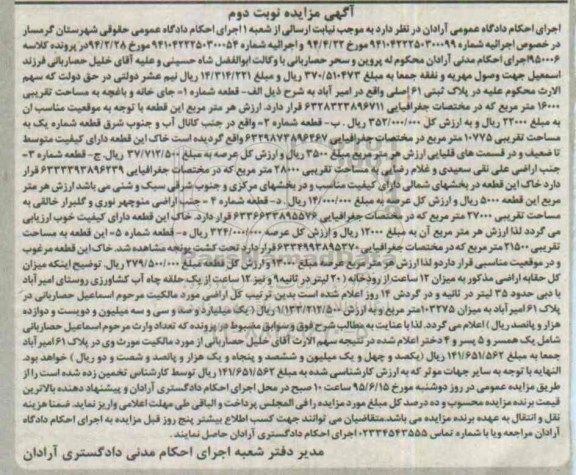 آگهی مزایده نوبت دوم
اجرای احکام دادگاه عمومی آرادان در نظر دارد به موجب نیابت ارسالی از شعبه ۱ اجرای احکام دادگاه عمومی حقوقی شهرستان گرمسار
در خصوص اجرائیه شماره ۹۴۱۰۴۲۲۲۵۰۳۰۰۰۹۹ مورخ ۹۴/۴/۲۲ و اجرائیه شماره ۹۴۱۰۴۲۲۲۵۰۳۰۰۰۵۴ مورخ ۹۴/۲/۲۸ در پرونده کلاسه
۹۵۰۰۰۶ اجرای احکام مدنی آرادان محکوم له پروین و سحر حصاربانی با وکالت ابوالفضل شاه حسینی و علیه آقای خلیل حصاربانی فرزند
اسمعیل جهت وصول مهریه و نفقه جمعا به مبلغ ۳۷۰/۵۱۰۴۷۳ ریال و مبلغ ۱۴/۳۱۴/۲۲۱ ریال نیم عشر دولتی در حق دولت که سهم
الارث محکوم علیه در پلاک ثبتی ۶۱ اصلی واقع در امیر آباد به شرح ذیل الف- قطعه شماره ۱- جای خانه و باغچه به مساحت تقریبی
۱۶۰۰۰ متر مربع که در مختصات جغرافیایی ۶۳۲۸۳۲۳۸۹۶۷۱۱ قرار دارد. ارزش هر متر مربع این قطعه با توجه به موقعیت مناسب ان
به مبلغ ۲۲۰۰۰ ریال و به ارزش کل ۳۵۲/۰۰۰/۰۰۰ ریال . ب- قطعه شماره ۲- واقع در جنب کانال آب و جنوب شرق قطعه شماره یک به
مساحت تقریبی ۱۰۷۷۵ متر مربع در مختصات جغرافیایی ۶۳۲۹۸۷۳۸۹۶۴۶۷ واقع گردیده است خاک این قطعه دارای کیفیت متوسط
تا ضعیف و در قسمت های قلیایی ارزش هر متر مربع مبلغ ۳۵۰۰ ریال و ارزش کل عرصه به مبلغ ۳۷/۷۱۲/۵۰۰ ریال. ج- قطعه شماره ۳-
جنب اراضی علی نقی سعیدی و غلام رضایی به مساحت تقریبی ۲۸۰۰۰ متر مربع که در مختصات جغرافیایی ۶۳۳۳۳۹۳۸۹۶۲۳۹ قرار
دارد خاک این قطعه در بخشهای شمالی دارای کیفیت مناسب و در بخشهای مرکزی و جنوب شرقی سبک و شنی می باشد ارزش هر متر
مربع این قطعه ۵۰۰۰ ریال و ارزش کل عرصه به مبلغ ۱۴/۰۰۰/۰۰۰ ریال. د- قطعه شماره ۴ – جنب اراضی منوچهر نوری و گلیرار خالقی به
مساحت تقریبی ۲۷۰۰۰ متر مربع که در مختصات جغرافیایی ۶۳۳۶۶۳۳۸۹۵۵۷۶ قرار دارد. خاک این قطعه دارای کیفیت خوب ارزیابی
می گردد لذا ارزش هر متر مربع آن به مبلغ ۱۲۰۰۰ ریال و ارزش کل عرصه ۳۲۴/۰۰۰/۰۰۰ ریال ه- قطعه شماره ۵- این قطعه به مساحت
تقریبی ۲۱۵۰۰ متر مربع که در مختصات جغرافیایی ۶۳۳۴۹۹۳۸۹۵۳۷۰ قرار دارد تحت کشت یونجه مشاهده شد. خاک این قطعه مرغوب
و در موقعیت مناسبی قرار دارد و لذا ارزش هر متر مربع عرصه مبلغ ۱۳۰۰۰ و ارزش کل قطعه مبلغ ۲۷۹/۵۰۰/۰۰۰ ریال. توضیح اینکه میزان
کل حقابه اراضی مذکور به میزان ۱۲ ساعت از رودخانه (۲۰ لیتر در ثانیه ۹ و نیز ۱۲ ساعت از یک حلقه چاه آب کشاورزی روستای امیر آباد
با دبی حدود ۳۵ لیتر در ثانیه و در گردش ۱۴ روز اعلام شده است بدین ترتیب کل اراضی مورد مالکیت مرحوم اسماعیل حصاربانی در
پلاک ۶۱ امیر آباد به میزان ۱۰۳۲۷۵ متر مربع و به ارزش ۱/۱۳۳/۲۱۲/۵۰۰ ریال (یک میلیارد و صد و سی و سه میلیون و دویست و دوازده
هزار و پانصد ریال) اعلام می گردد. لذا با عنایت به مطالب شرح فوق و سوابق مضبوط در پرونده که تعداد وارث مرحوم اسماعیل حصاربانی
شامل یک همسر و ۵ پسر و ۴ دختر اعلام شده در نتیجه سهم الارث آقای خلیل حصاربانی از مورد مالکیت مورث وی در پلاک ۶۱ امیر آباد
جمعا به مبلغ ۱۴۱/۶۵۱/۵۶۲ ریال (یکصد و چهل و یک میلیون و ششصد و پنجاه و یک هزار و پانصد و شصت و دو ریال) خواهد بود.
النهایه با توجه به سایر جهات موثر که به ارزش کارشناسی شده به مبلغ ۱۴۱/۶۵۱/۵۶۲ ریال توسط کارشناس تخمین زده شده است را از
طریق مزایده عمومی در روز دوشنبه مورخ ۹۵/۶/۱۵ ساعت ۱۰ صبح در محل اجرای احکام دادگستری آرادان و پیشنهاد دهنده بالاترین
قیمت برنده مزایده محسوب و ده درصد کل مبلغ مورد مزایده را فی المجلس پرداخت و الباقی طی مهلت اعلامی واریز نماید. ضمنا هزینه
نقل و انتقال به عهده برنده مزایده می باشد. متقاضیان می توانند جهت کسب اطلاع بیشتر پنج روز قبل مزایده به اجرای احکام دادگاه
آرادان مراجعه و یا با شماره تماس ۰۲۳۳۴۵۴۳۵۵۵ اجرای احکام دادگستری آرادان حاصل نمایند.
مدیر دفتر شعبه اجرای احکام مدنی دادگستری آرادان